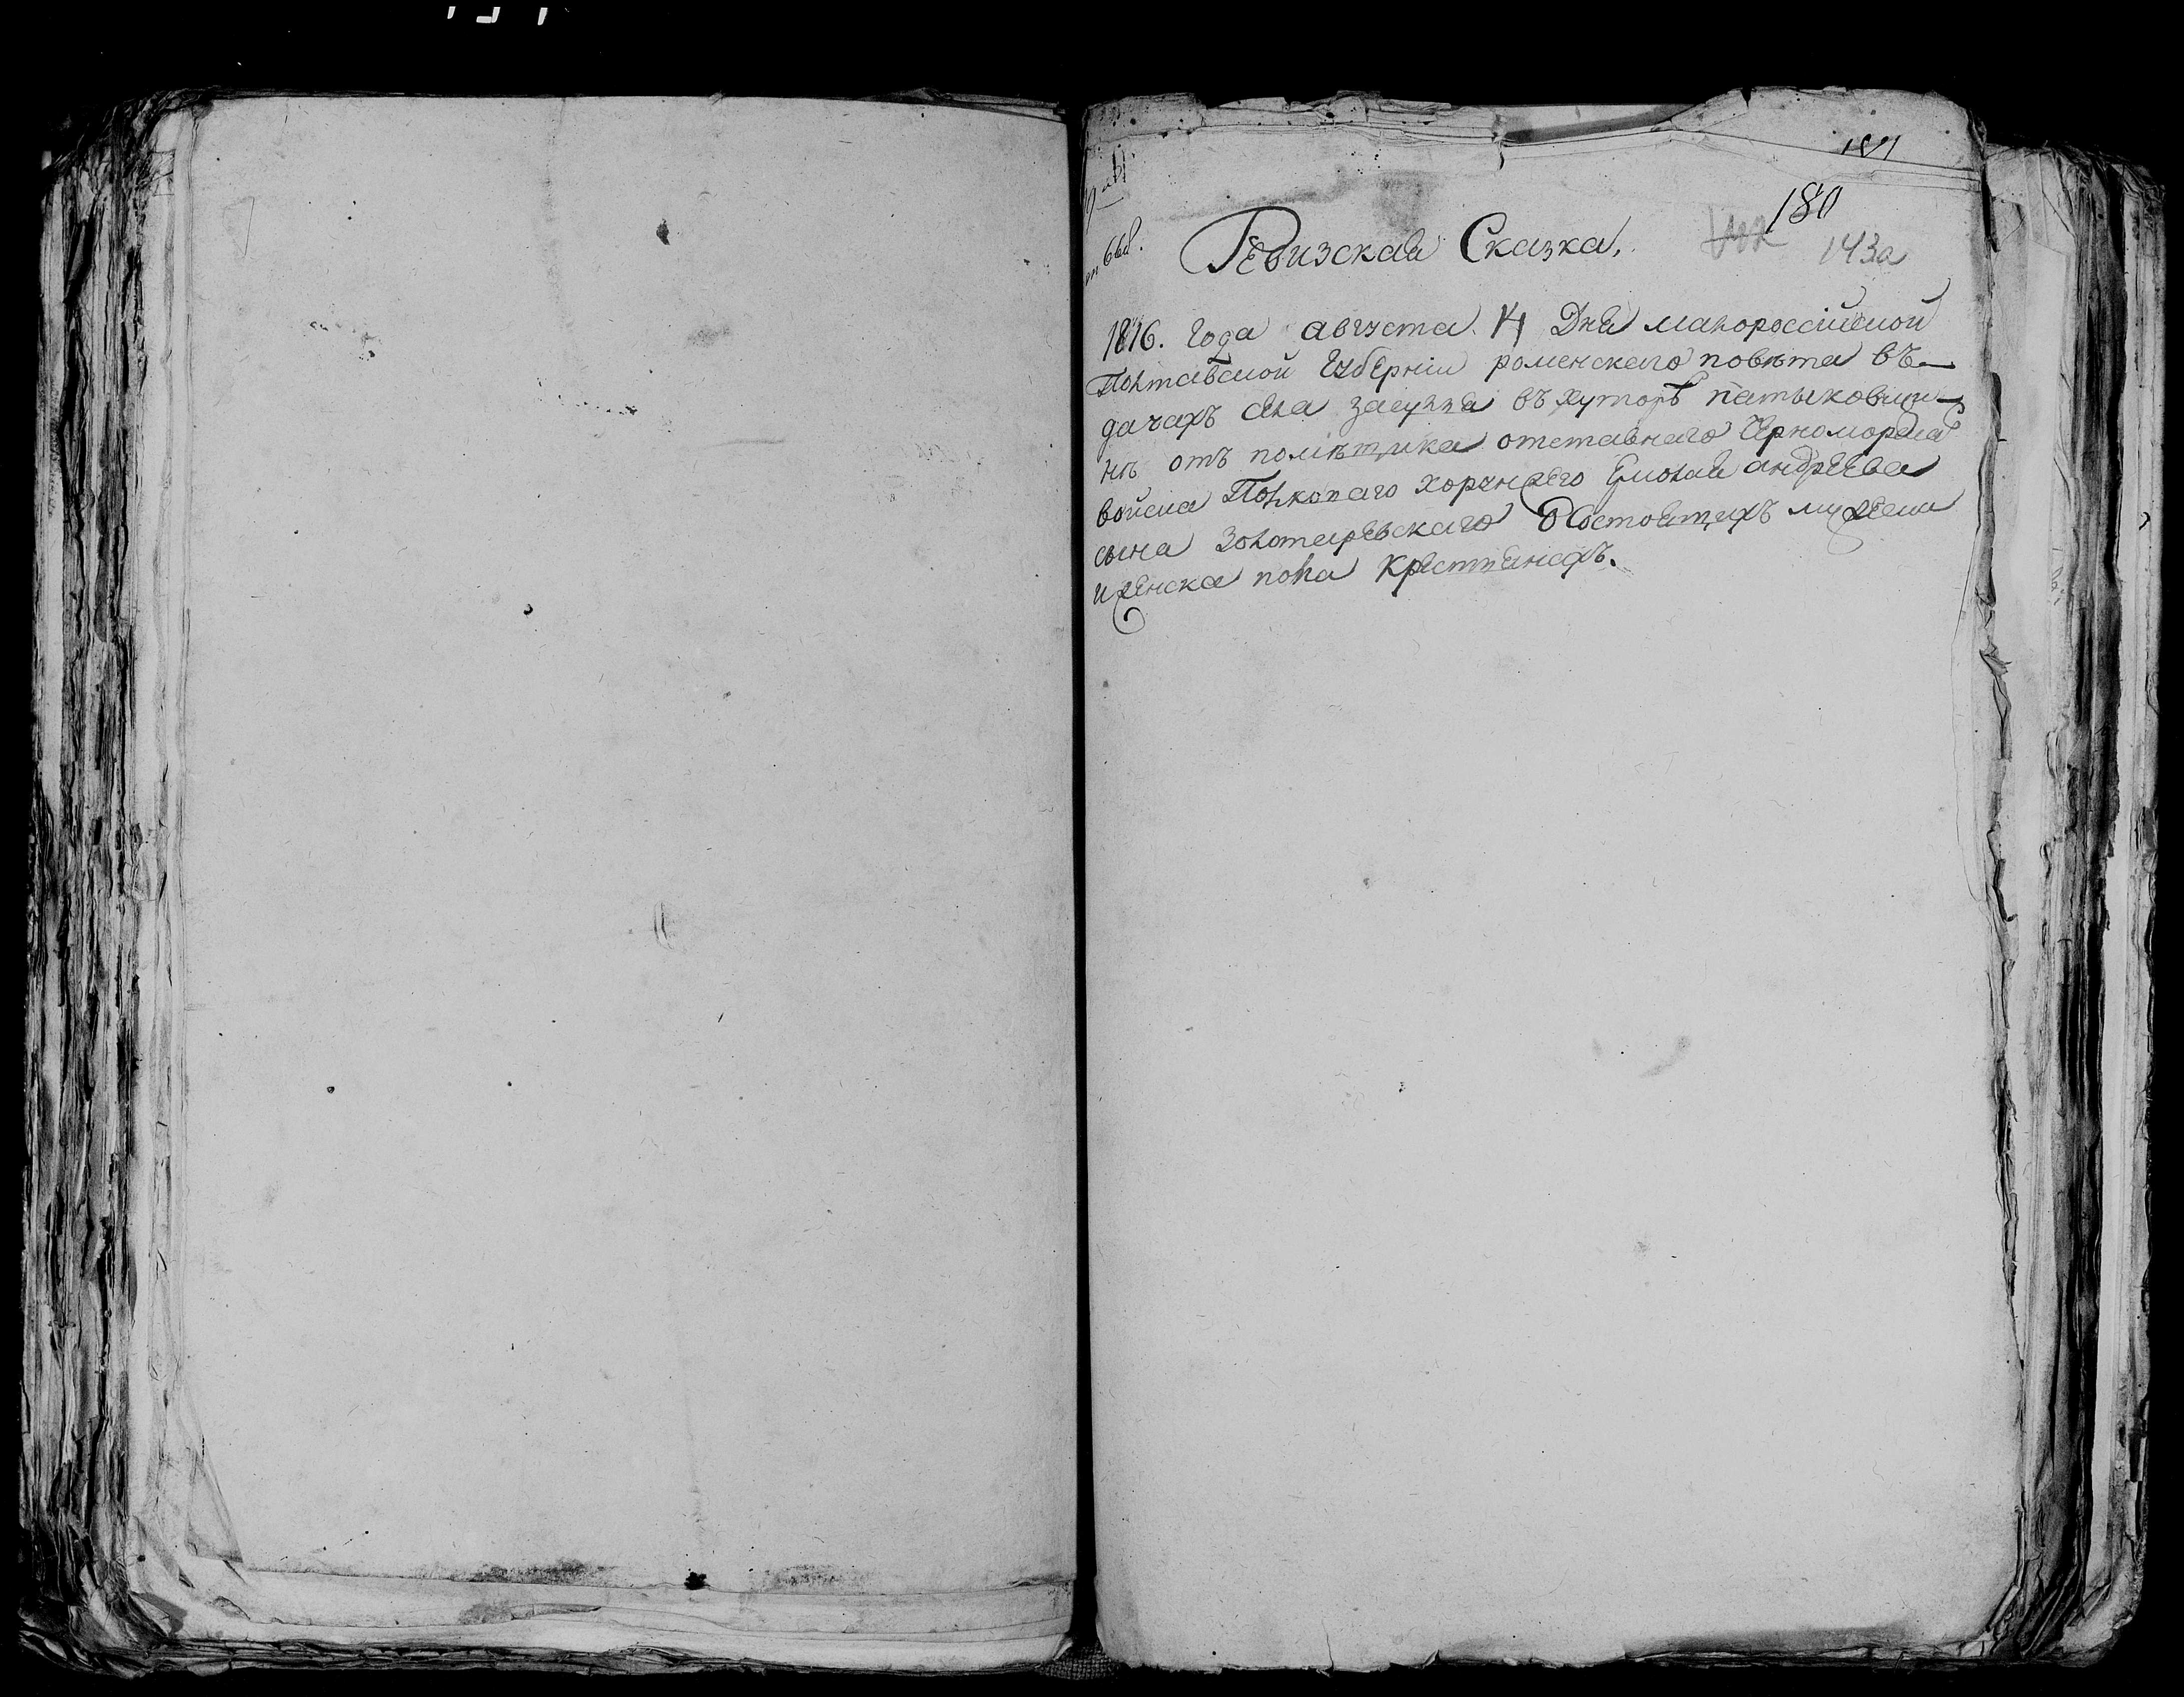 180
143а
Ревизская Сказка.
1816. года августа 14 дня малороссійской
Полтавской губерніи роменского повѣта въ
дачахъ села засулля въ хуторѣ патыковщи-
нѣ отъ помѣщика отставнаго Черноморска
войска Полковаго хорунжего Ермолая андреева
сына Золотаревскаго о состоящихъ мужеска
и женска пола крестьянахъ.